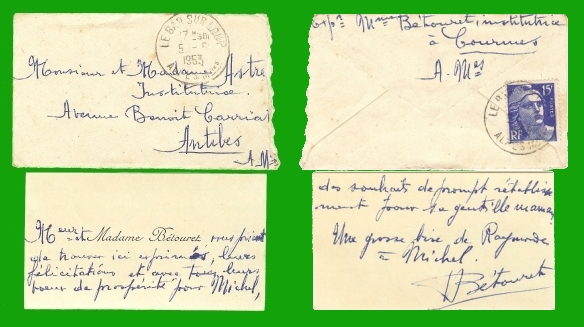 LE BAR SUR LOUP
17 H
5 - 5
1953
Monsieur et Madame Astre
Institutrice.
Avenue Benoit Carriat
Antibes
A. Mes
Expre Mme Bétouret, institutrice
à Courmes
A. Mes
15F
RF
Meur et Madame Bétouret vous prient
de trouver ici exprimées, leurs
félicitations et avec tous leurs
voeux de prospérité pour Michel,
des souhaits de prompt rétablisse
ment pour sa gentille maman
Une grosse bise de Raymonde
à Michel.
Bétouret